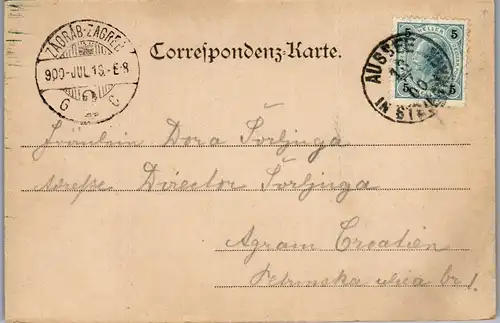 ZÁGRÁB-ZAGREB
900-JUL 16.-E-8
G C
Correspondenz-Karte.
5 5
AUSSEE
IN STEI
5 5
Fräulein Dora Torljuga
Adresse Director Torljuga
Agram Croatien
Petrinska ulica br 1.